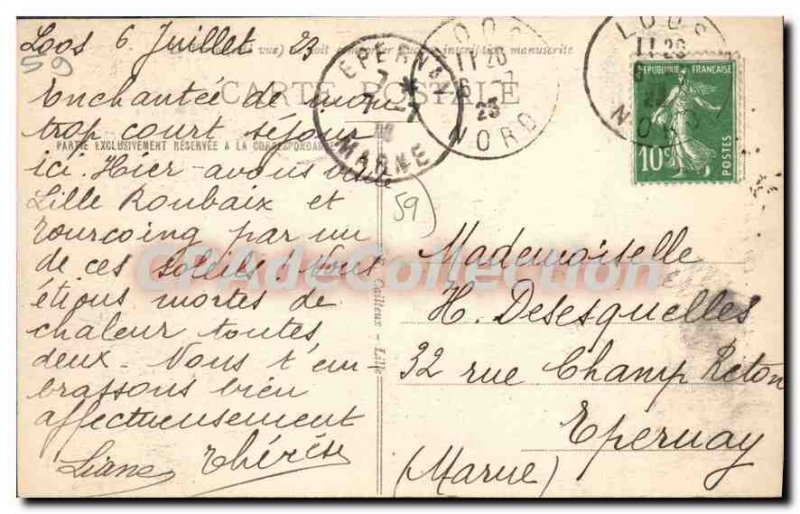 Loos 6 Juillet 23
vue) doit comporter interdiction manuscrite
CARTE POSTALE
PARTIE EXCLUSIVEMENT RÉSERVÉE A LA CORRESPONDANCE
Enchantée de mon
trop court séjour
ici. Hier avons visité
Lille Roubaix et
Tourcoing par un
de ces soleils! Nous
étions mortes de
chaleur toutes
deux. Nous t'em
brassons bien
affectueusement
Liane Thérèse
59
59
EPERNAY
7 *
7 -7
MARNE
LOOS
11 20
6 -7
23
NORD
LOOS
11 20
NORD
REPUBLIQUE FRANÇAISE
10c
POSTES
Cailteux - Lille
CPADeCollection
Mademoiselle
H. Desesquelles
32 rue Champ Reton
Epernay
(Marne)